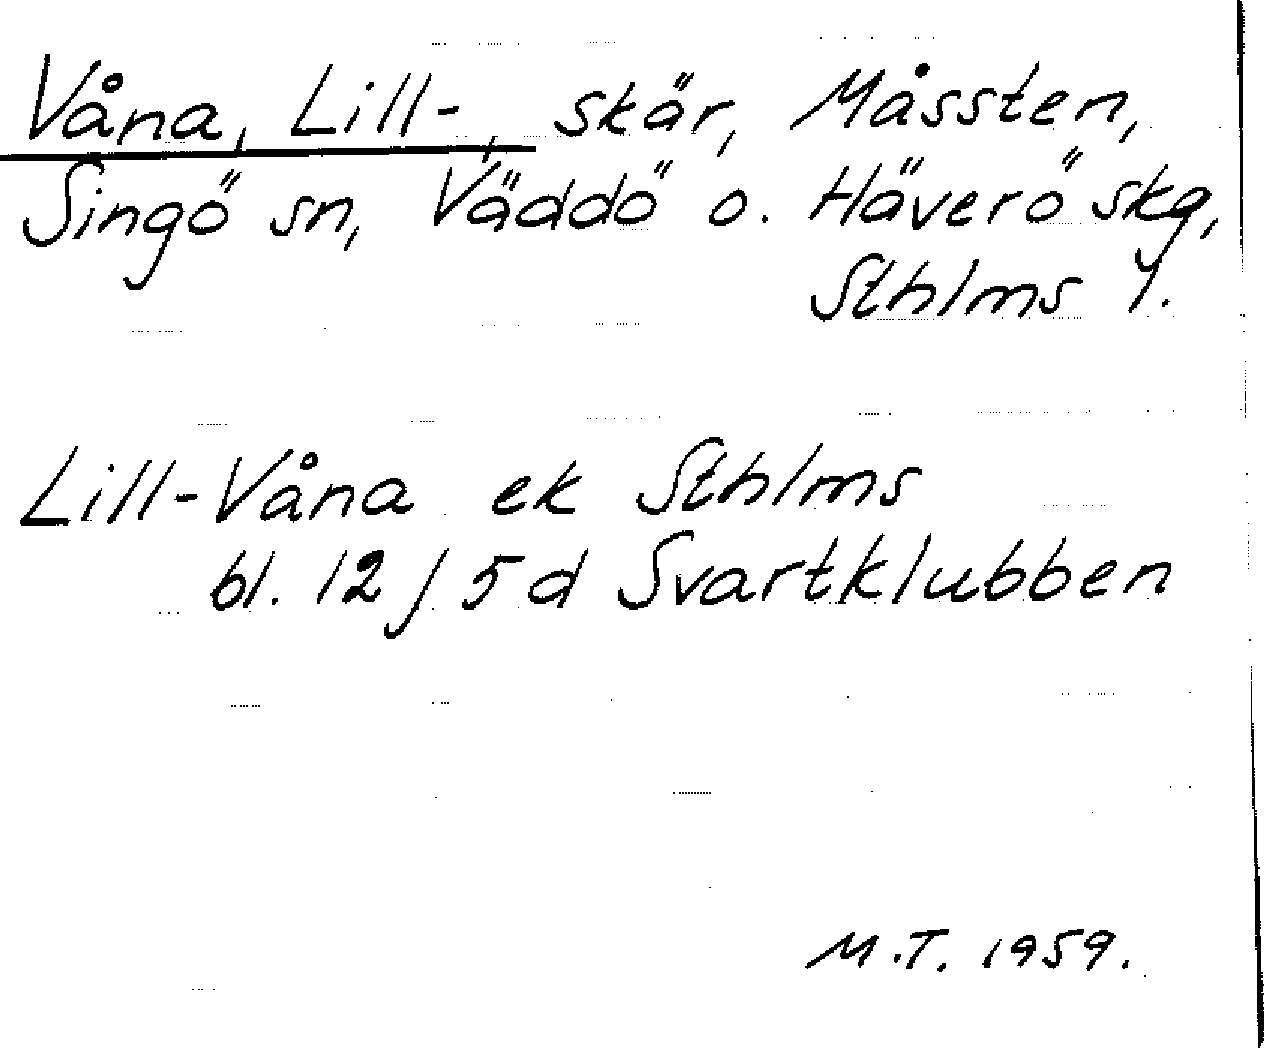 Våna, Lill-, skär, Måssten,
Singö sn, Väddö o. Häverö skg,
Sthlms l.
Lill-Våna ek Sthlms
bl. 12 / 5 d Svartklubben
M.T. 1959.